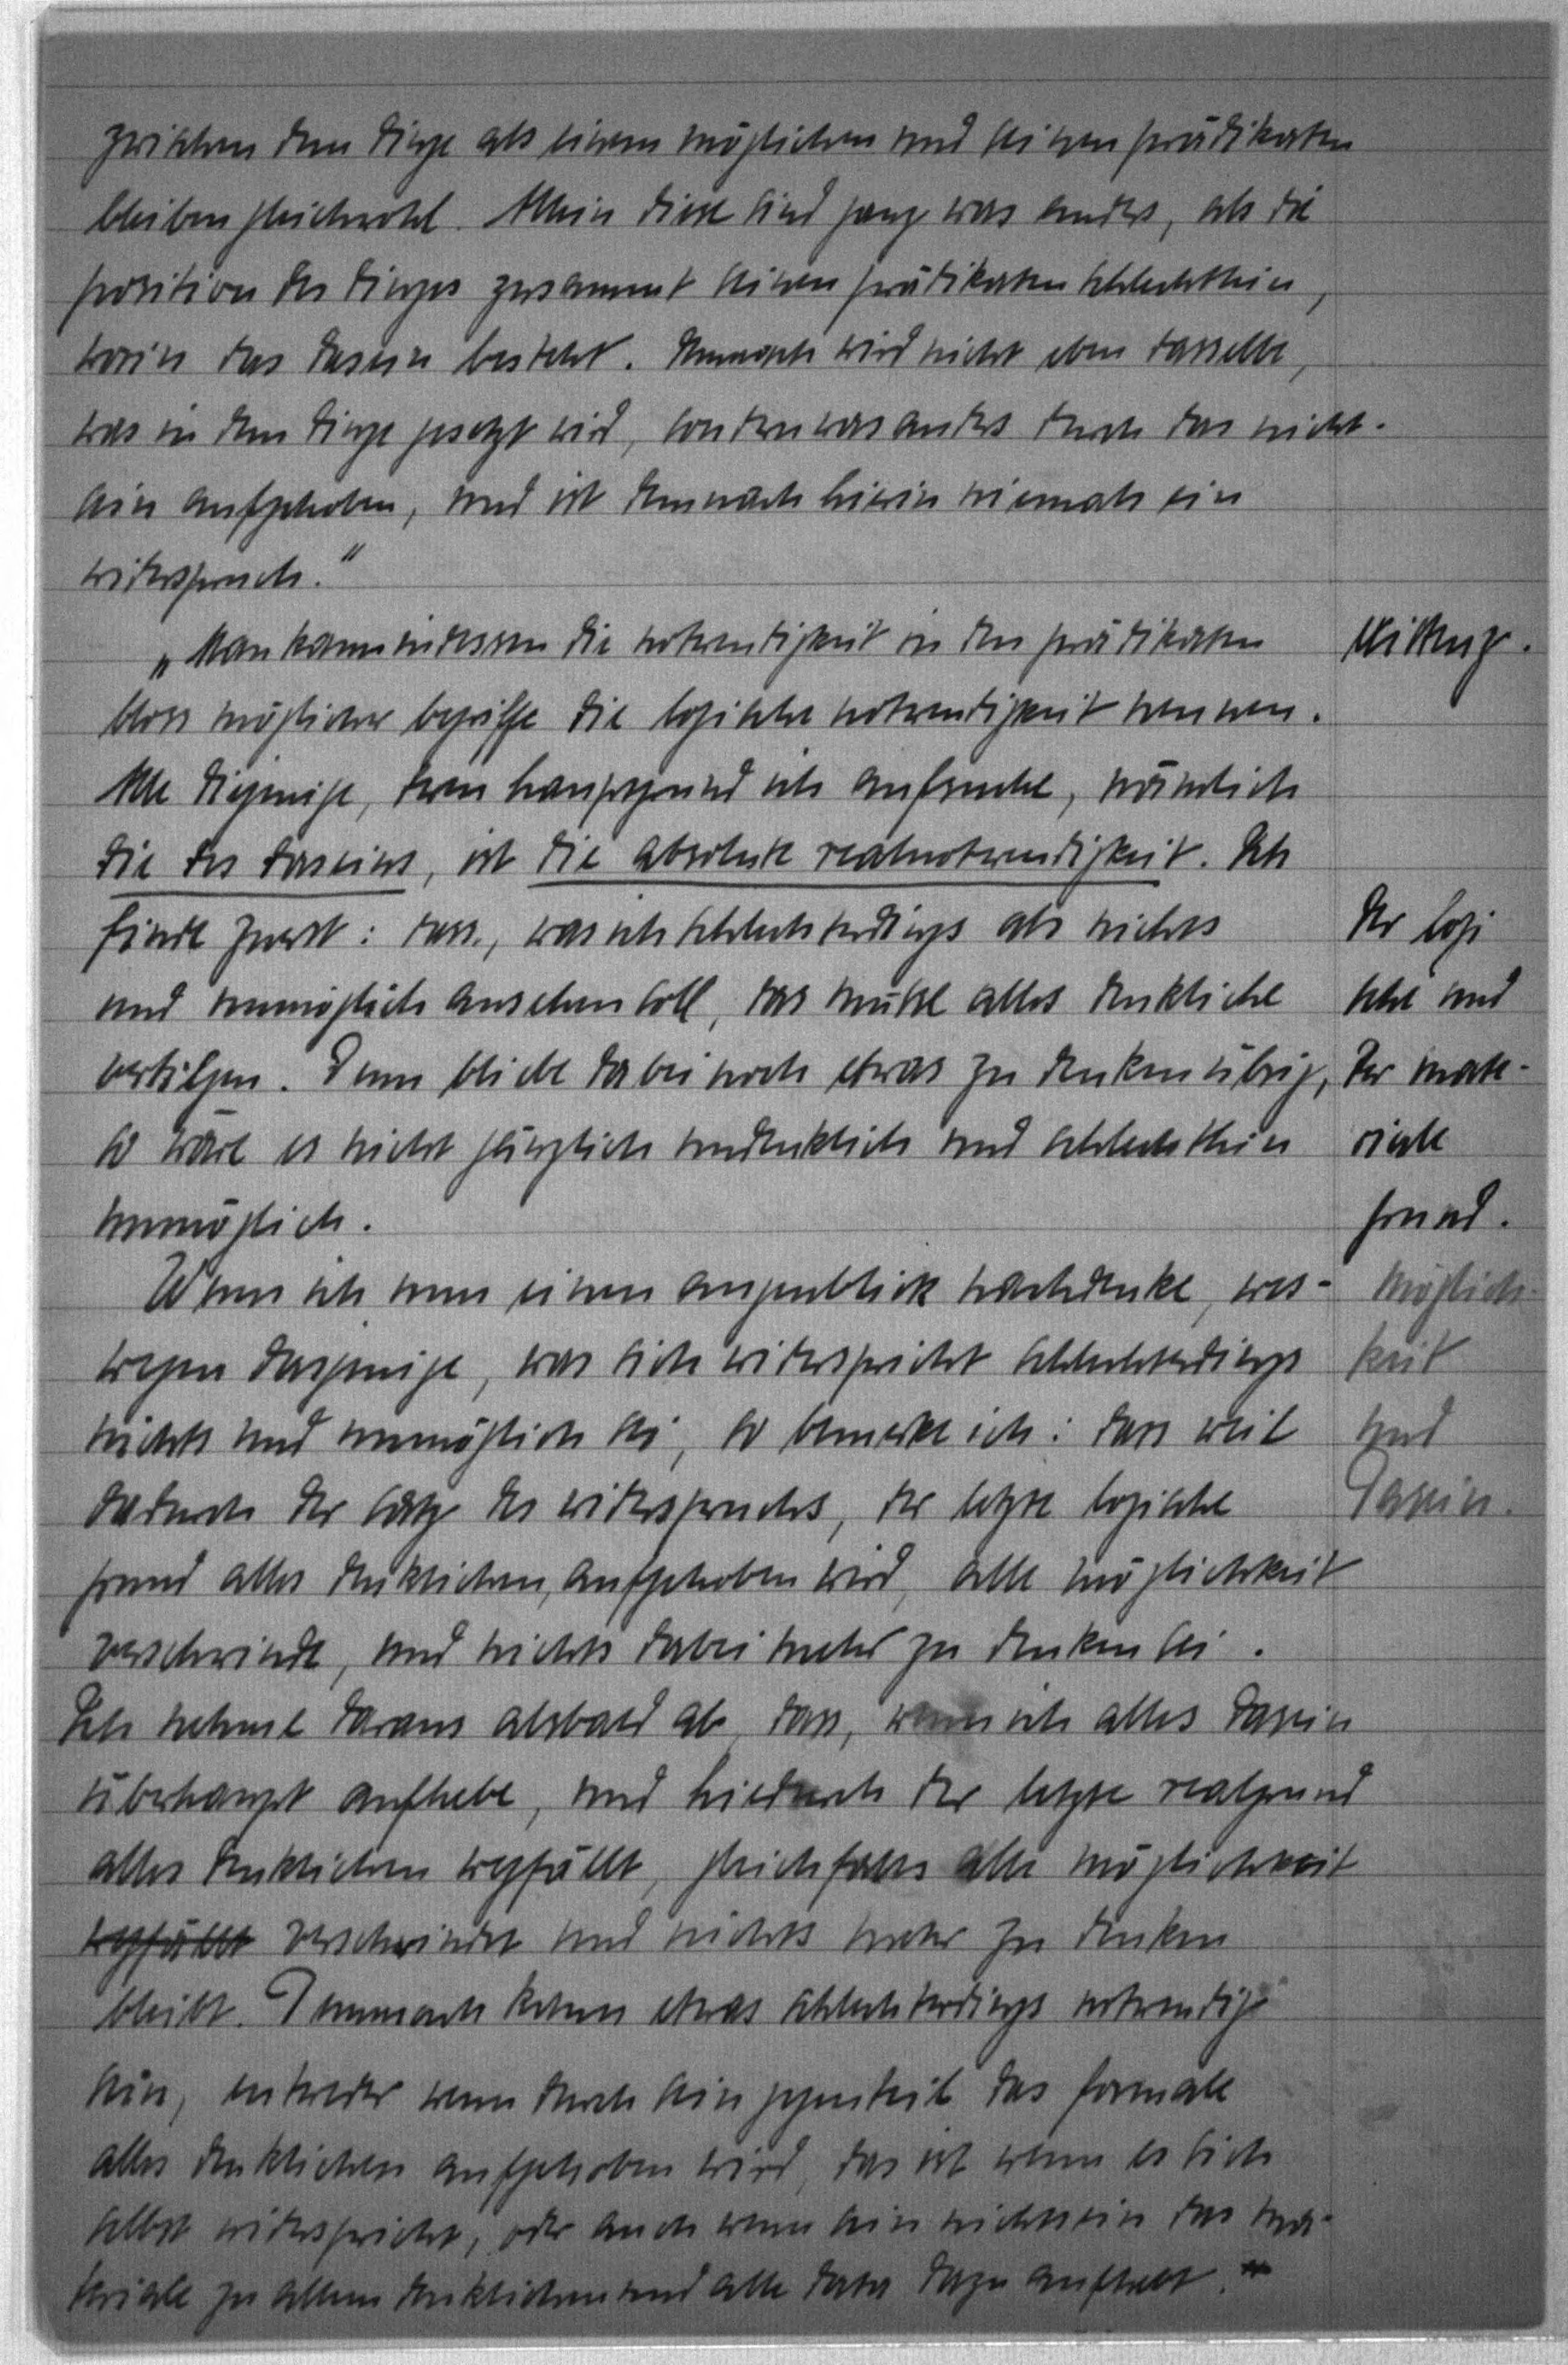 zwischen dem dinge als einem möglichen und seinen prädikaten
bleiben gleichwohl. Allein diese sind ganz was anders, als die
position des dinges zusammt seinen prädikaten schlechthin,
worin das dasein besteht. demnach wird nicht eben dasselbe,
was in dem dinge gesetzt wird, sondern was anders durch das nicht-
sein aufgehoben, und ist demnach hierin niemals ein
widerspruch."
„Man kann indessen die notwendigkeit in den prädikaten
bloss möglicher begriffe die logische notwendigkeit nennen.
Alle diejenige, deren hauptgrund ich aufsuche, nämlich
die des daseins, ist die absolute realnotwendigkeit. Ich
finde zuerst: dass, was ich schlechterdings als nichts
und unmöglich ansehen soll, das müsse alles denkliche
vertilgen. Denn bliebe dabei noch etwas zu denken übrig,
so wäre es nicht gänzlich undenklich und schlechthin
unmöglich.
Wenn ich nun einen augenblick nachdenke, wes-
wegen dasjenige, was sich widerspricht schlechterdings
nichts und unmöglich sei, so bemerke ich: dass weil
dadurch der satz des widerspruchs, der letzte logische
grund alles denklichen, aufgehoben wird, alle möglichkeit
verschwinde, und nichts dabei mehr zu denken sei.
Ich nehme daraus alsbald ab, dass, wenn ich alles dasein
überhaupt aufhebe, und hiedurch der letzte realgrund
alles denklichen wegfällt, gleichfalls alle möglichkeit
wegfällt verschwindet und nichts mehr zu denken
bleibt. Demnach kann etwas schlechterdings notwendig
sein, entweder wenn durch sein gegenteil das formale
alles denklichen aufgehoben wird, das ist wenn es sich
selbst widerspricht, oder auch wenn sein nichtsein das ma-
teriale zu allem denklichen und alle data dazu aufhebt."
Der logi
sche und
der mate-
riale
grund.
Möglich-
keit
und
Dasein.